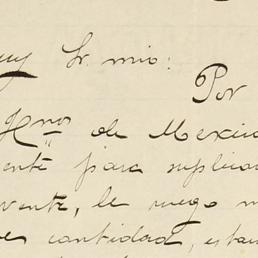 uy Sr. mio:
Por
Hnos de Mexico
ente para suplicar
vente, le ruego m
cantidad, esta